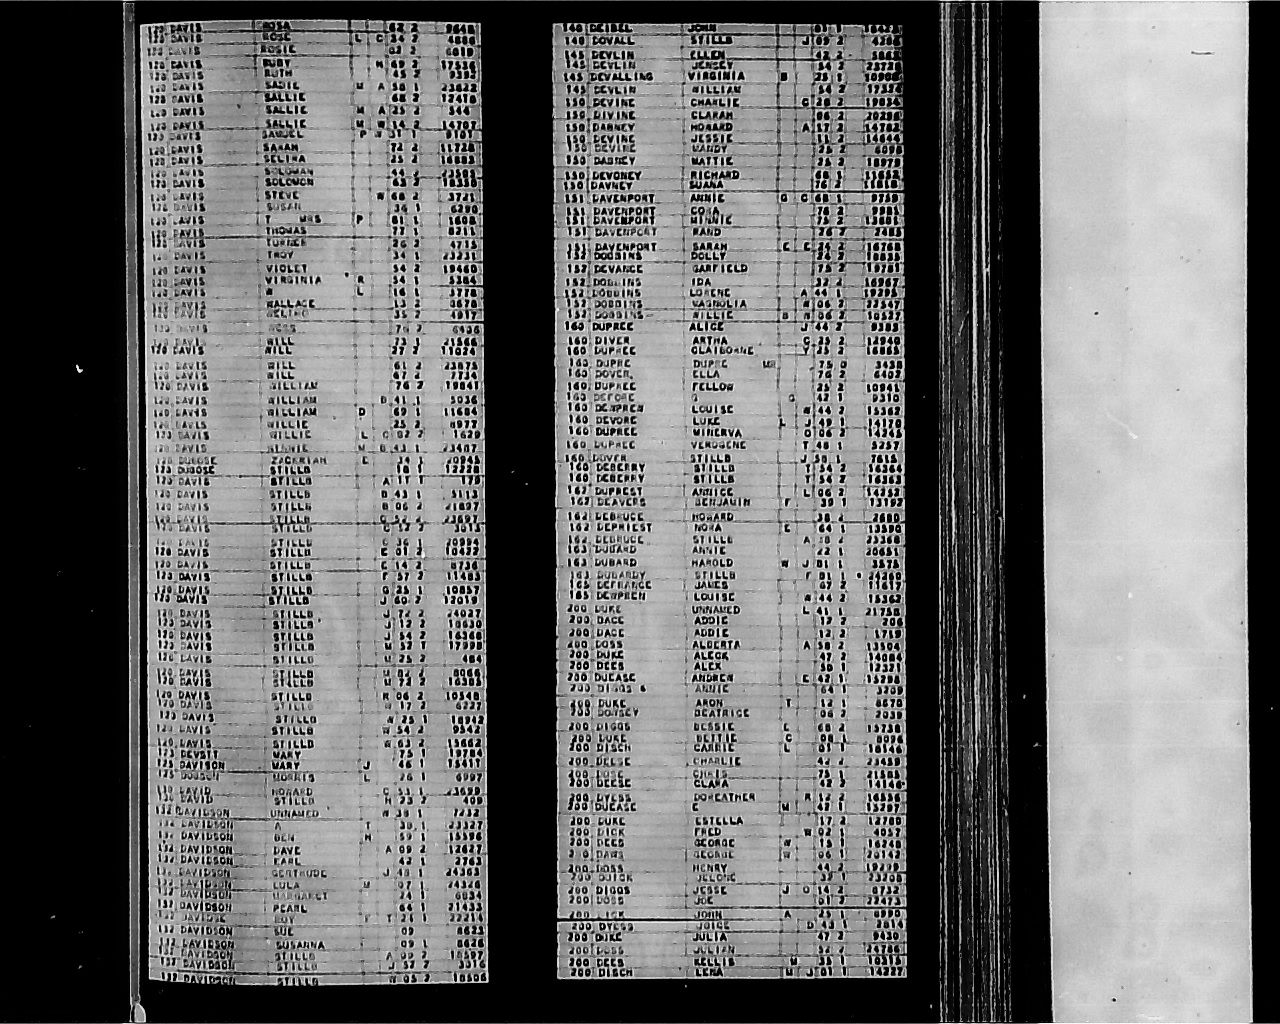 120 DAVIS ROSA 62 2
120 DAVIS ROSE L C 34 2
120 DAVIS ROSIE 02 2 6819
120 DAVIS RUBY H 69 2 17536
120 DAVIS RUTH 45 2 9352
120 DAVIS SADIE M A 58 1 23622
120 DAVIS SALLIE 68 2 12416
120 DAVIS SALLIE M A 25 2 544
120 DAVIS SALLIE M W 14 2 14707
120 DAVIS SAMUEL P W 31 1
120 DAVIS SARAH 72 2 11728
120 DAVIS SELINA 25 2 16883
120 DAVIS SOLOMAN 44 2
120 DAVIS SOLOMON 63 2 16330
120 DAVIS STEVE W 68 2 3721
120 DAVIS SUSAN 36 1 6290
120 DAVIS T MRS P 61 1 1608
120 DAVIS THOMAS 77 1 8211
120 DAVIS TURNER 26 2 4715
120 DAVIS TROY 34 1 23231
120 DAVIS VIOLET 54 2 19460
120 DAVIS VIRGINIA R 54 1 5384
120 DAVIS L 16 1 3778
120 DAVIS WALLACE 13 2 8670
120 DAVIS 35 2 4917
120 DAVIS 76 2 6436
120 DAVIS WILL 73 1 21566
120 DAVIS WILL 27 2 11024
120 DAVIS WILL 61 2 23875
120 DAVIS WILL 67 2 7734
120 DAVIS WILLIAM 76 2 19841
120 DAVIS WILLIAM B 41 1 5036
120 DAVIS WILLIAM D 69 1 11684
120 DAVIS WILLIE 25 2 8977
120 DAVIS WILLIE L C 02 2 1629
120 DAVIS WINNIE M B 43 1 23487
120 DUBOSE ZACKRIAH E 34 1 20945
120 DUBOSE STILLB 18 1 12228
120 DAVIS STILLB A 17 1 179
120 DAVIS STILLB B 43 1 5113
120 DAVIS STILLB B 06 2 21897
120 DAVIS STILLB C 52 2 23697
120 DAVIS STILLB C 12 2 3013
120 DAVIS STILLB C 36 1 20994
120 DAVIS STILLB E 01 2 10422
120 DAVIS STILLB E 14 2 8736
120 DAVIS STILLB F 57 2 11483
120 DAVIS STILLB G 25 1 10857
120 DAVIS STILLB J 60 2 12019
120 DAVIS STILLB J 72 2 24027
120 DAVIS STILLB J 12 2 18630
120 DAVIS STILLB J 54 2 16368
120 DAVIS STILLB M 52 1 17998
120 DAVIS STILLB M 25 2 484
120 DAVIS STILLB M 02 2
120 DAVIS STILLB M 72 2
120 DAVIS STILLB R 06 2 10548
120 DAVIS STILLB W 17 2 6227
120 DAVIS STILLB W 25 1 18942
120 DAVIS STILLB W 54 2 9542
120 DAVIS STILLB W 63 2 15662
123 DEVSTT MARY 75 1 19784
125 DAVISON MARY J 46 1 15411
125 DOBSON MORRIS L 26 1 6997
130 DAVID HOWARD C 51 1 23699
130 DAVID STILLB H 23 2 409
132 DAVIDSON UNNAMED W 38 1 7232
132 DAVIDSON A T 39 1 23327
132 DAVIDSON BEN H 59 1 18596
132 DAVIDSON DAVE A 09 2 12627
132 DAVIDSON EARL 42 1 2763
132 DAVIDSON GERTRUDE J 48 1 24363
132 DAVIDSON LULA M 07 1 24326
132 DAVIDSON MARGARET 24 1 6634
132 DAVIDSON PEARL 64 1 21433
132 DAVIDSE ROY F T 21 1 22214
132 DAVIDSON SUE 09 8623
132 DAVIDSON SUSANNA 09 1 8626
132 DAVIDSON STILLB A 09 2 18597
132 DAVIDSON STILLB J 57 2 3016
132 DAVIDSON STILLB W 05 2 18506
140 DEIBEL JOHN
140 DOVALL STILLB J 09 2 4286
145 DEVLIN ELLEN 42 2
145 DEVLIN JENSEY 54 2 23721
145 DEVALLING VIRGINIA B 25 1 10908
145 DEVLIN WILLIAM 54 2 17324
150 DEVINE CHARLIE C 28 2 19034
150 DIVINE CLARAH 06 2 20296
150 DABNEY HOWARD A 17 2 14782
150 DEVINE JESSIE 11 2 14644
150 DEVINE MANDY 25 2 6096
150 DABNEY MATTIE 25 2 18979
150 DEVONEY RICHARD 68 1 11652
150 DAVNEY SUANA 76 2 11818
151 DAVENPORT ANNIE G C 68 1 9759
151 DAVENPORT CORA 76 2 9981
151 DAVENPORT MINNIE 75 2 13661
151 DAVENPORT RAND 26 2 2485
151 DAVENPORT SARAH E E 24 2 16768
152 DOBBINS DOLLY 24 2 18835
152 DEVANCE GARFIELD 75 2 19781
152 DOBBINS IDA 32 2 16967
152 DOBBINS LORENE A 44 1 19295
152 DOBBINS MAGNOLIA W 06 2 22547
152 DOBBINS WILLIE B W 06 2 10527
160 DUPREE ALICE J 44 2 9385
160 DIVER ARTHA C 25 2 12940
160 DUPREE CLAIBORNE Y 25 2 16865
160 DUPRE DUPRE MR 75 0 3438
160 DOVER ELLA 76 2 6402
160 DUPREE FELLOW 25 2 10941
160 DEFORE G G 42 1 9310
160 DEWPREN LOUISE W 44 2 15362
160 DEVORE LUKE L J 49 1 14170
160 DUPREE MINERVA O 06 2 14345
160 DUPREE VERDGENE T 48 1 5257
160 DOVER STILLB J 58 1 7615
160 DEBERRY STILLB T 54 2 16364
160 DEBERRY STILLB T 54 2 16363
162 DUPREST ANNICE L 06 2 14252
162 DEAVERS BENJAMIN F 39 1 13192
162 DEBRUCE HOWARD 38 2 2680
162 DEPRIEST NORA E 64 1 13590
162 DEBRUCE STILLB A 38 2 23368
163 DUBARD ANNIE 22 1 20651
163 DUBARD HAROLD W J 81 1 3575
163 DUBARDY STILLB F 81 1 24260
165 DEFRANCE JAMES 67 2 11617
165 DEWPREN LOUISE W 44 2 15362
200 DUKE UNNAMED L 41 1 21758
200 DACE ADDIE 12 2 206
200 DACE ADDIE 12 2 1719
200 DOSS ALBERTA A 58 2 13504
200 DUKE ALECK 47 2 14084
200 DEES ALEX 50 1 12321
200 DUEASE ANDREW E 42 1 15298
200 DIGGS ANNIE 64 1 3209
200 DUKE ARON T 12 1 8670
200 DORSEY BEATRICE 06 2 2039
200 DIGGS BESSIE E 68 2 15738
200 DUKE BETTIE C 08 1 8096
200 DISCH CARRIE L 01 1 18146
200 DELSE CHARLIE 42 2 23459
200 DOSE CHRIS 75 1 21585
200 DEESE CLARA 42 2 14146
200 DYESS DOREATHER R 12 2 16556
200 DUEASE E M 42 1 15297
200 DUKE ESTELLA 17 2 12780
200 DICK FRED W 02 1 4057
200 DEES GEORGE W 15 1 16248
200 DAWS GEORGE W 06 1 20142
200 DOSS HENRY 44 2 19239
200 DUICK JELONE 37 1 23208
200 DIGGS JESSE J O 14 2 8732
200 DOSS JOE 01 2 22473
200 DICK JOHN A 25 1 8990
200 DYESS JOICE D 43 1 2814
200 DUKE JULIA 47 2 9430
200 DOSS JULIAN 52 2 24786
200 DEES KELLIS M 35 1 10315
200 DISCH LENA M J 01 1 14227